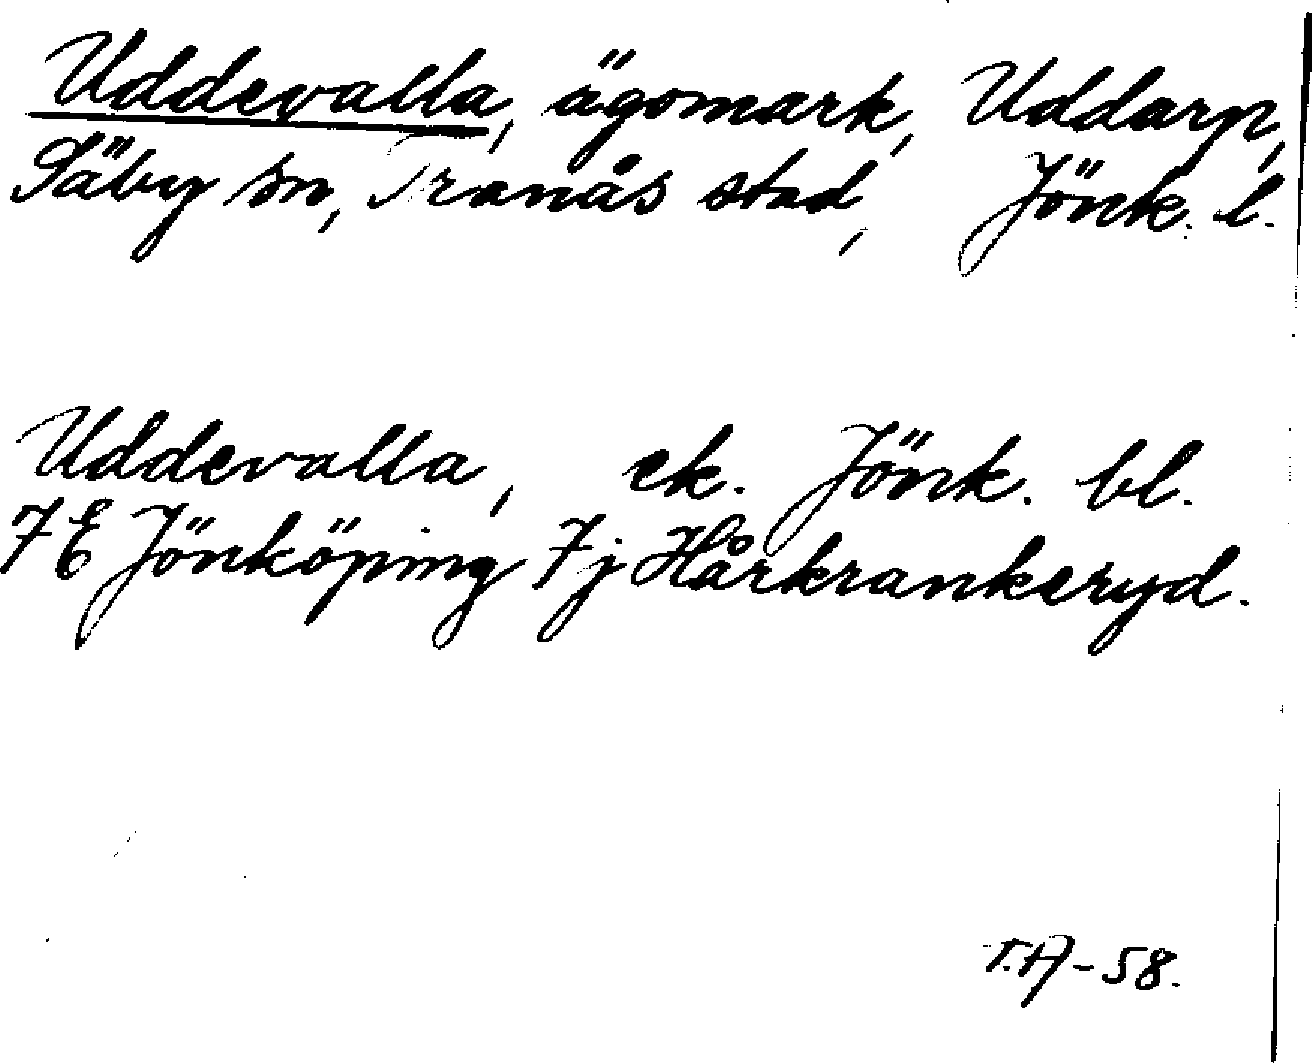 Uddevalla, ägomark, Uddarp,
Säby sn, Tranås stad, Jönk. l.
Uddevalla, ek. Jönk. bl.
7 E Jönköping 7j Hårkrankeryd.
T.A-58.